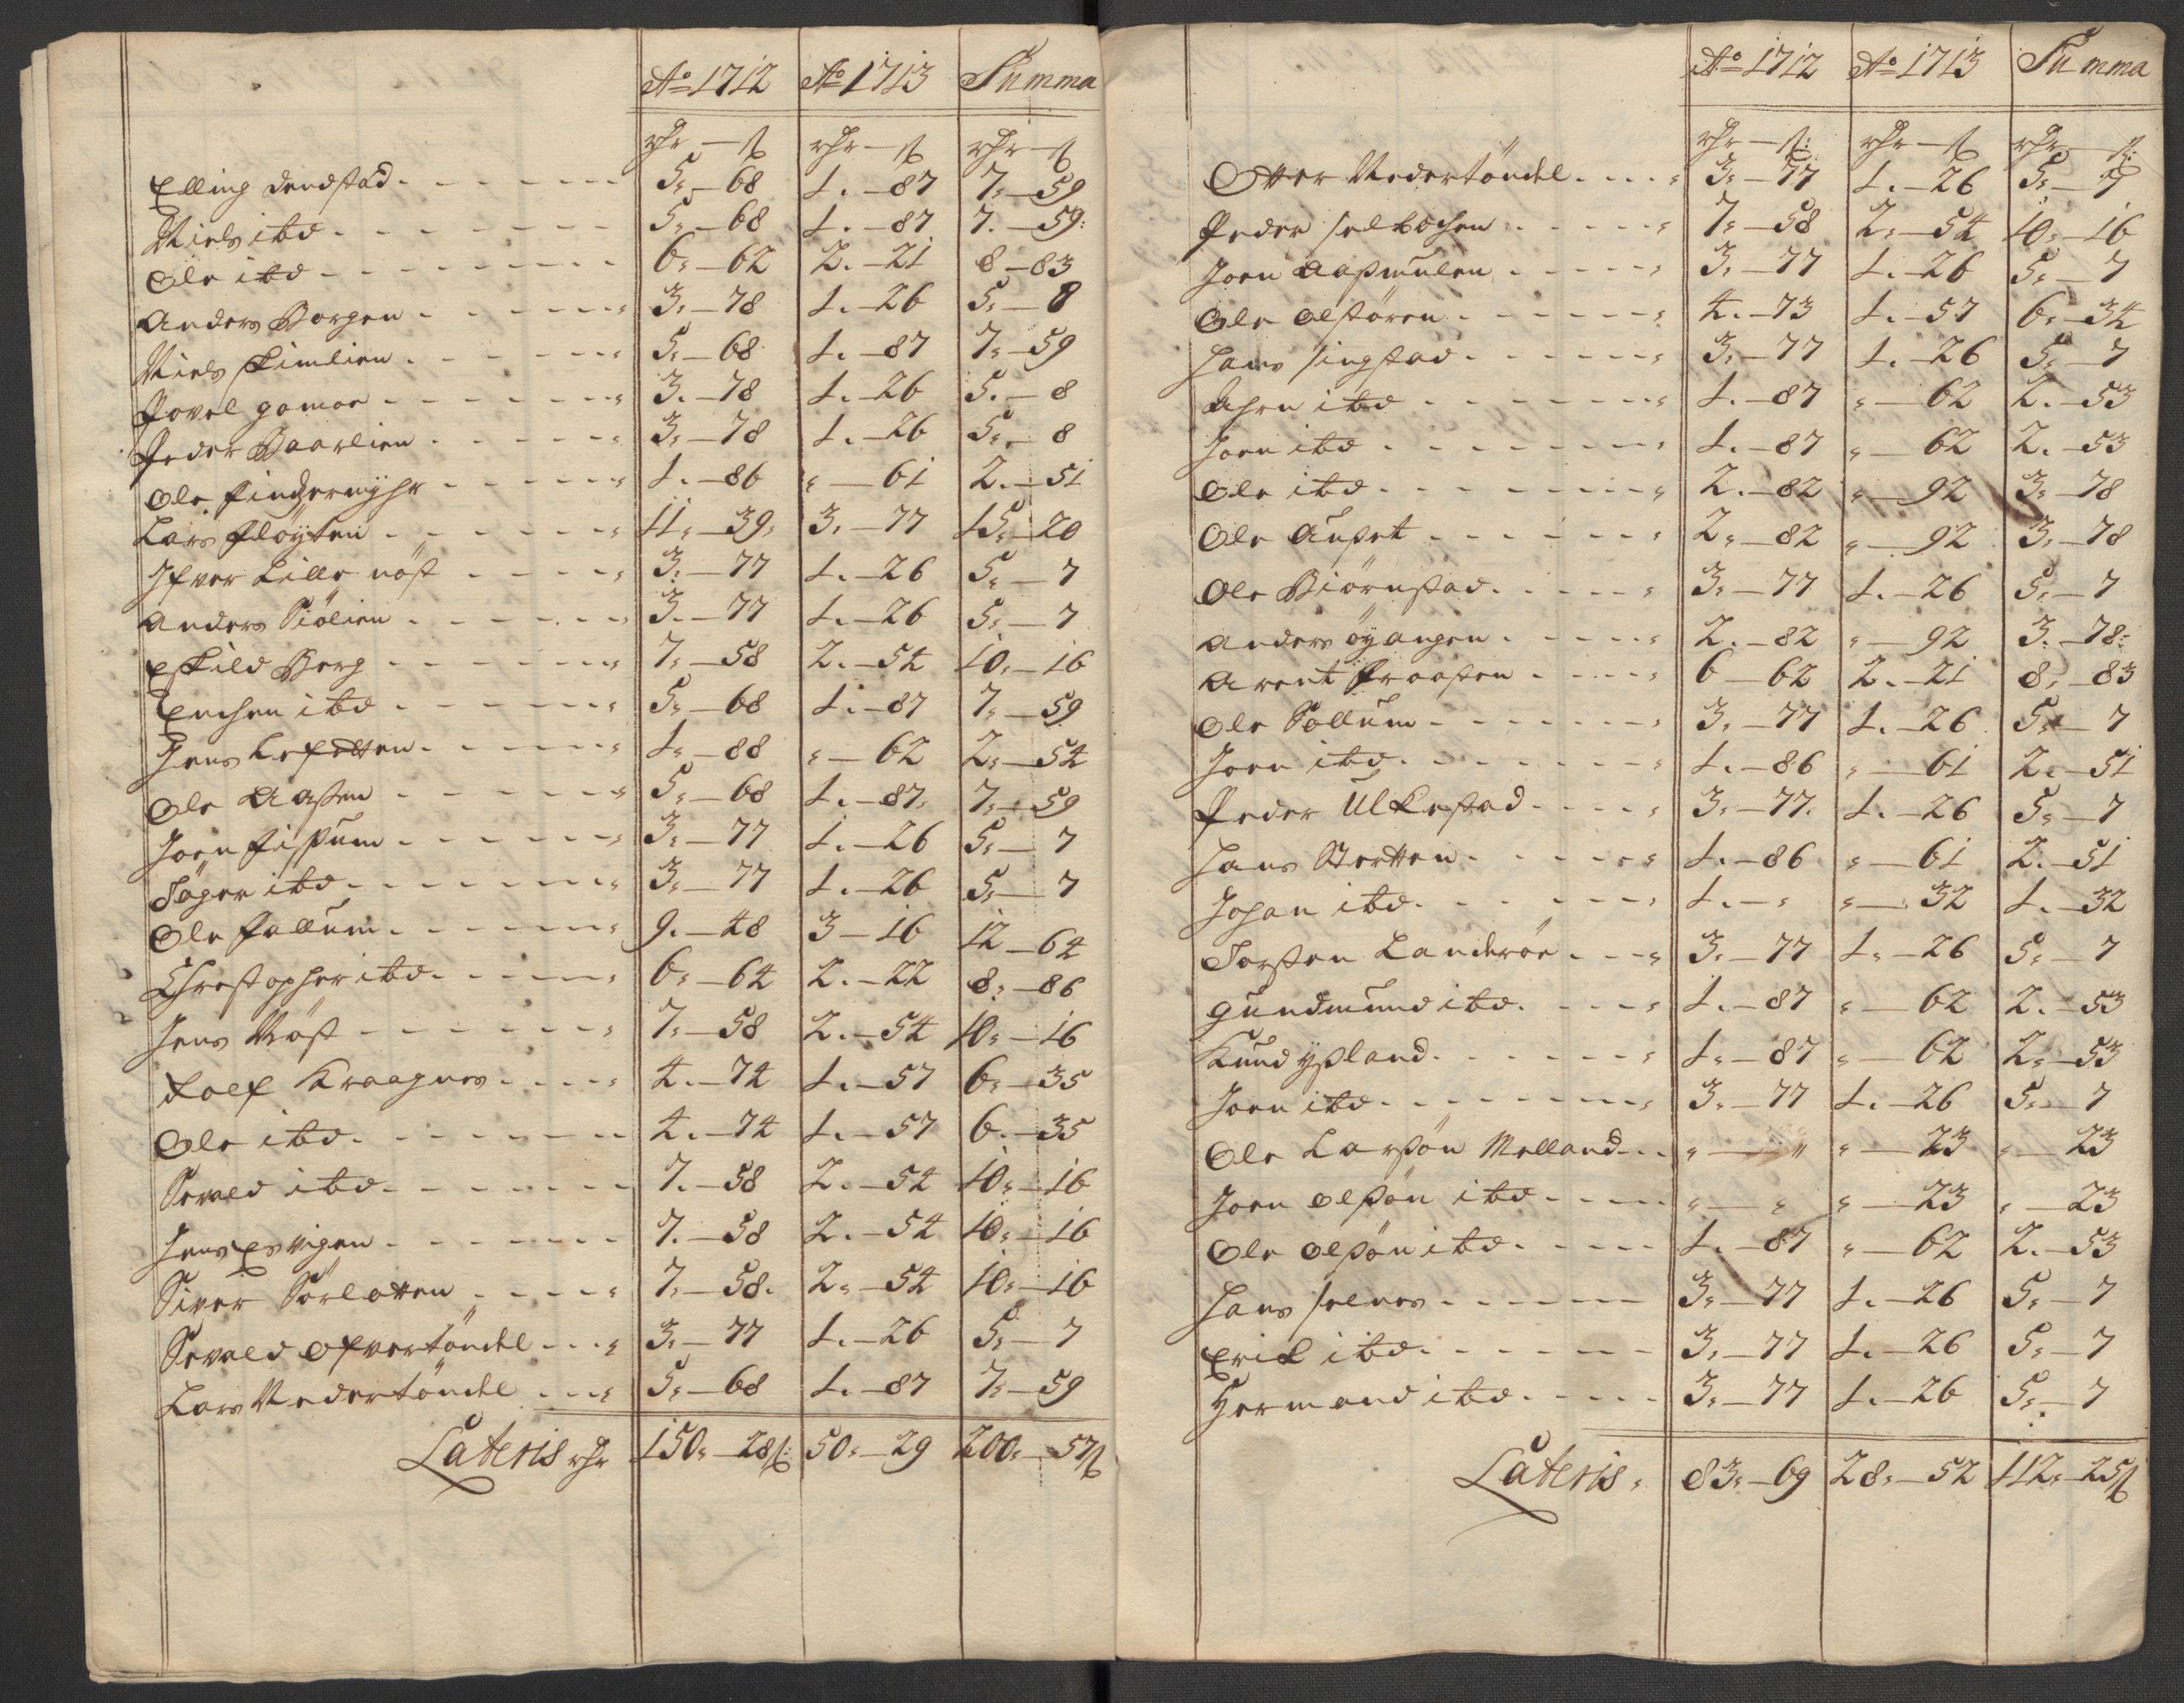 Ao 1712 Ao 1713 Summa
rdr — s rdr — s rdr — s
Elling dendstad 5. — 68 1. — 87 7. — 59
Niels ibd 5. — 68 1. — 87 7. — 59
Ole ibd 6. — 62 2. — 21 8 — 83
Anders Borgen 3. — 78 1. — 26 5. — 8
Niels Skimlien 5. — 68 1. — 87 7. — 59
Povel gomoe 3. — 78 1. — 26 5. — 8
Peder Baarlien 3. — 78 1. — 26 5. — 8
Ole 1. — 86 " — 61 2. — 51
Lars fløyten 11. — 39 3. — 77 15. — 20
Ifver Lille nøst 3. — 77 1. — 26 5. — 7
Anders Siølien 3. — 77 1. — 26 5. — 7
Eskild Berg 7. — 58 2. — 54 10. — 16
Enchen ibd 5. — 68 1. — 87 7. — 59
Jens 1. — 88 " — 62 2. — 54
Ole Aasen 5. — 68 1. — 87 7. — 59
Joen fissum 3. — 77 1. — 26 5. — 7
Søger ibd 3. — 77 1. — 26 5. — 7
Ole follum 9. — 48 3 — 16 12 — 64
Christopher ibd 6. — 64 2. — 22 8. — 86
Jens Nøst 7. — 58 2. — 54 10. — 16
Rolf Kraagnes 4. — 74 1. — 57 6. — 35
Ole ibd 4. — 74 1. — 57 6. — 35
Sevald ibd 7. — 58 2. — 54 10. — 16
Jens Esvigen 7. — 58 2. — 54 10. — 16
Siver Sørletten 7. — 58 2. — 54 10. — 16
Sevald ofvertøndel 3. — 77 1. — 26 5. — 7
Lars Nedertøndel 5. — 68 1. — 87 7. — 59
Lateris rdr 150. — 28 s 50. — 29 200. — 57 s
Ao 1712 Ao 1713 Summa
rdr — s rdr — s rdr — s
Otter Nedertøndel 3. — 77 1. — 26 5. — 7
Peder selbochen 7. — 58 2. — 54 10. — 16
Joen Aasmulen 3. — 77 1. — 26 5. — 7
Ole olstøren 4. — 73 1. — 57 6. — 34
Hans singstad 3. — 77 1. — 26 5. — 7
ibd 1. — 87 " — 62 2. — 53
Joen ibd 1. — 87 " — 62 2. — 53
Ole ibd 2. — 82 " — 92 3. — 78
Ole Aunset 2. — 82 " — 92 3. — 78
Ole Biørnstad 3. — 77 1. — 26 5. — 7
Anders øyangen 2. — 82 " — 92 3. — 78
Arent Fraasen 6 — 62 2. — 21 8. — 83
Ole Sollum 3. — 77 1. — 26 5. — 7
Joen ibd 1. — 86 " — 61 2. — 51
Peder Ulkestad 3. — 77 1. — 26 5. — 7
Hans Stortten 1. — 86 " — 61 2. — 51
Johan ibd 1. — " " — 32 1. — 32
Torsten Landerøe 3. — 77 1. — 26 5. — 7
gundmund ibd 1. — 87 " — 62 2. — 53
Knud ysland 1. — 87 " — 62 2. — 53
Joen ibd 3. — 77 1. — 26 5. — 7
Ole Larsøn Melland " — " " — 23 " — 23
Joen olsøn ibd " — " " — 23 " — 23
Ole olsøn ibd 1. — 87 " — 62 2. — 53
Hans selnes 3. — 77 1. — 26 5. — 7
Erik ibd 3. — 77 1. — 26 5. — 7
Hermand ibd 3. — 77 1. — 26 5. — 7
Lateris 83. — 69 28. — 52 112. — 25 s